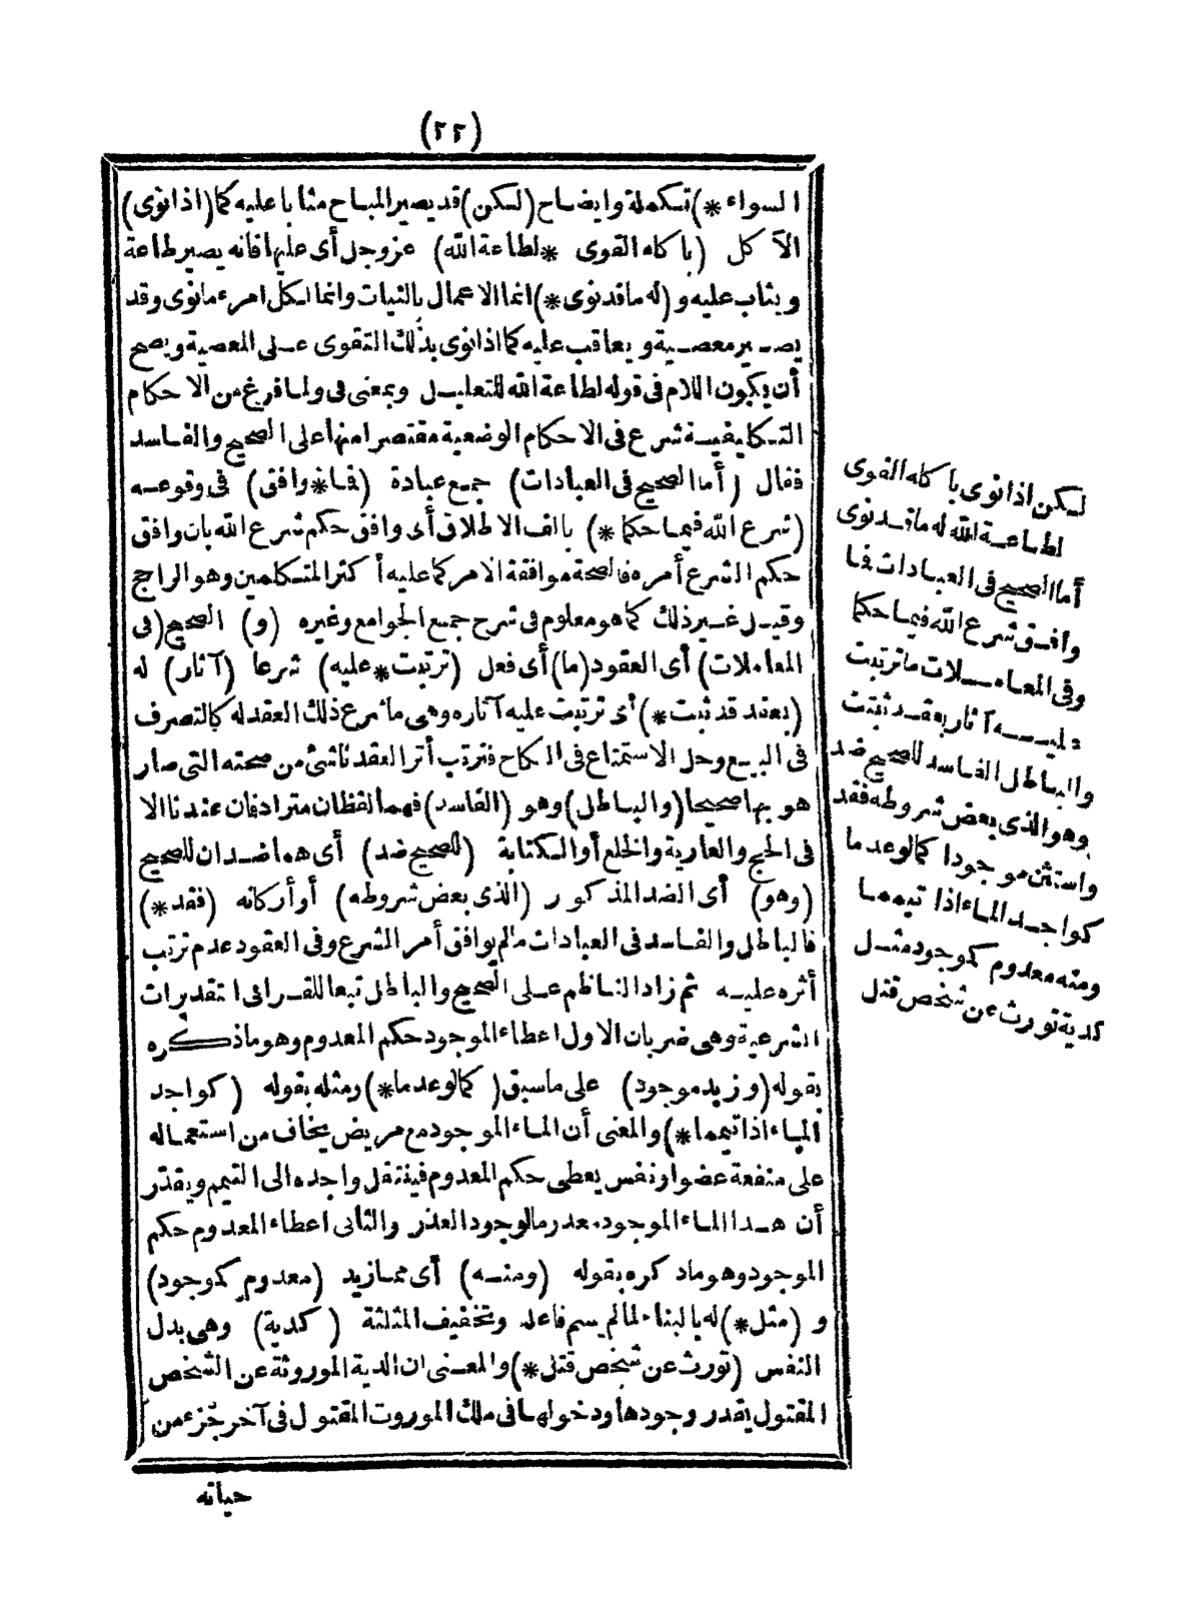 (٢٢)
السواء *) تكملة وايضاح (لكن) قد يصير المباح مثابا عليه كما (اذا نوى)
الآكل (بأكله القوى * لطاعة الله) عز وجل أى عليها فانه يصير طاعة
ويثاب عليه و (له ما قد نوى *) انما الاعمال بالنيات وانما لكل امرء ما نوى وقد
يصير معصية ويعاقب عليه كما اذا نوى بذلك التقوى على المعصية ويصح
أن يكون اللام فى قوله لطاعة الله للتعليل وبمعنى فى ولما فرغ من الاحكام
التكليفية شرع فى الاحكام الوضعية مقتصرا منها على الصحيح والفاسد
فقال (أما الصحيح فى العبادات) جمع عبادة (فما * وافق) فى وقوعه
(شرع الله فيما حكما *) بالف الاطلاق أى وافق حكم شرع الله بان وافق
حكم الشرع أمره فالصحة موافقة الامر كما عليه أكثر المتكلمين وهو الراجح
وقيل غير ذلك كما هو معلوم فى شرح جمع الجوامع وغيره (و) الصحيح (فى
المعاملات) أى العقود (ما) أى فعل (ترتبت * عليه) شرعا (آثار) له
(بعقد قد ثبت *) أى ترتبت عليه آثاره وهى ما شرع ذلك العقد له كالتصرف
فى البيع وحل الاستمتاع فى النكاح فترتب أثر العقد ناشئ من صحته التى صار
هو بها صحيحا (والباطل) وهو (الفاسد) فهما لفظان مترادفان عندنا الا
فى الحج والعارية والخلع أو الكتابة (للصحيح ضد) أى هما ضدان للصحيح
(وهو) أى الضد المذكور (الذى بعض شروطه) أو أركانه (فقد *)
فالباطل والفاسد فى العبادات ما لم يوافق أمر الشرع وفى العقود عدم ترتب
أثره عليه ثم زاد الناظم على الصحيح والباطل تبعا للقرافى التقديرات
الشرعية وهى ضربان الاول اعطاء الموجود حكم المعدوم وهو ما ذكره
بقوله (وزيد موجود) على ما سبق (كما لو عدما *) ومثله بقوله (كواجد
الماء اذا تيمما *) والمعنى أن الماء الموجود مع مريض يخاف من استعماله
على منفعة عضو او نفس يعطى حكم المعدوم فينتقل واجده الى التيمم ويقدر
أن هذا الماء الموجود معدوما لوجود العذر والثانى اعطاء المعدوم حكم
الموجود وهو ما ذكره بقوله (ومنه) أى مما زيد (معدوم كموجود)
و (مثل *) له بالبناء لما لم يسم فاعله وتخفيف المثلثة (كدية) وهى بدل
النفس (تورث عن شخص قتل *) والمعنى ان الدية الموروثة عن الشخص
المقتول يقدر وجودها ودخولها فى ملك الموروث المقتول فى آخر جزء من
حياته
لكن اذا نوى بأكله القوى
لطاعة الله له ما قد نوى
أما الصحيح فى العبادات فما
وافق شرع الله فيما حكما
وفى المعاملات ما ترتبت
عليه آثار بعقد ثبتت
والباطل الفاسد للصحيح ضد
وهو الذى بعض شروطه فقد
واستثن موجودا كما لو عدما
كواجد الماء اذا تيمما
ومنه معدوم كموجود مثل
كدية تورث عن شخص قتل